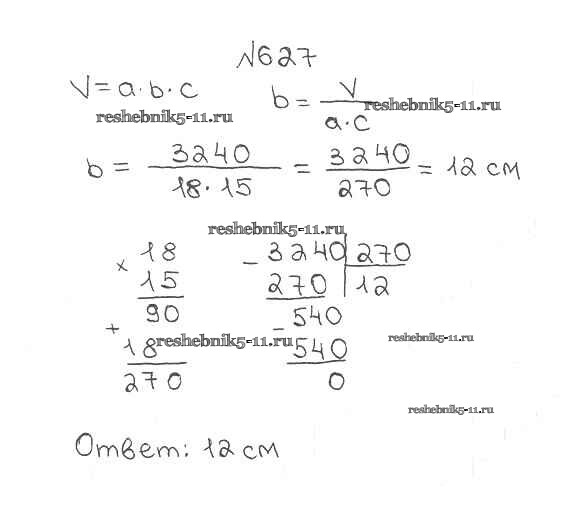 №627
V = a · b · c    b = V / a · c
reshebnik5-11.ru    reshebnik5-11.ru
b = 3240 / 18 · 15 = 3240 / 270 = 12 см
reshebnik5-11.ru
× 18    − 3240 | 270
15    270 | 12
90    540
+ 18 reshebnik5-11.ru − 540    reshebnik5-11.ru
270    0
reshebnik5-11.ru
Ответ: 12 см